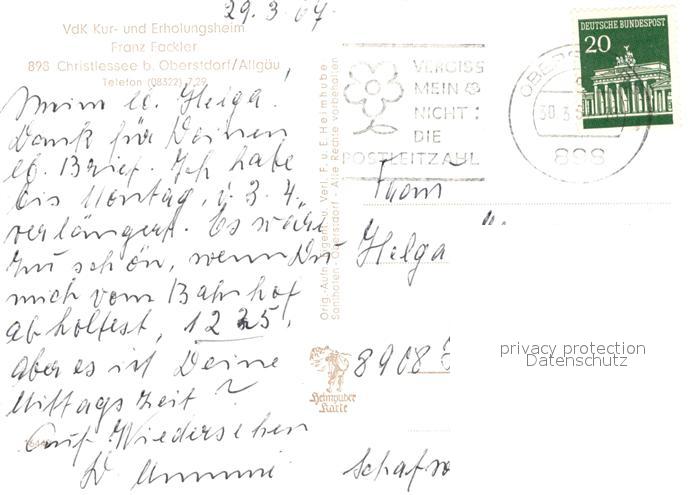 29. 3. 67.
VdK Kur- und Erholungsheim
Franz Fackler
898 Christlessee b. Oberstdorf/Allgäu
Telefon (08322) 729
Meine lb. Helga!
Dank für Deinen
lb. Brief. Ich habe
bis Montag, d. 3. 4.,
verlängert. Es wäre
zu schön, wenn Du
mich vom Bahnhof
abholtest, 12 25,
aber es ist Deine
Mittagszeit?
Auf Wiedersehen
D. Ammi
Orig.-Aufn., Eigent. u. Verl. F. u. E. Heimhuber
Sonthofen - Oberstdorf - Alle Rechte vorbehalten
Heimhuber
Karte
VERGISS
MEIN
NICHT:
DIE
POSTLEITZAHL
DEUTSCHE BUNDESPOST
20
OBERS
30.3.
898
Helga
8908
privacy protection
Datenschutz